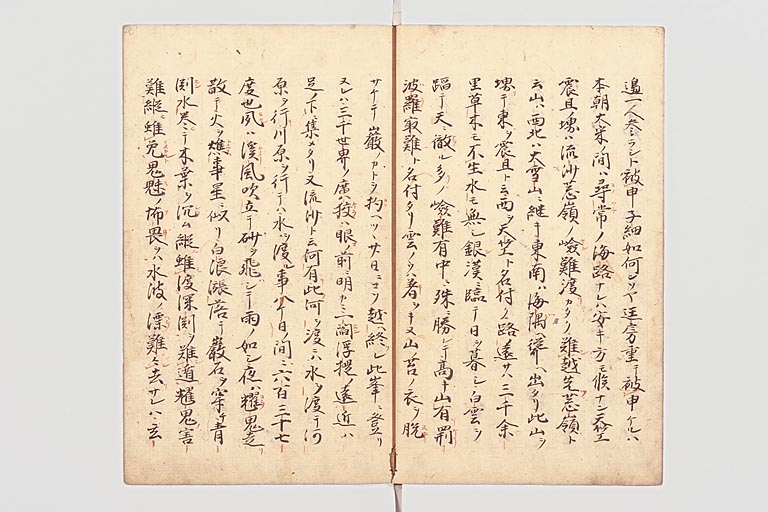 邉一人参ラント被申子細如何ソヤ匡房重テ被申ケルハ
本朝大宋ノ間ハ尋常ノ海路ナレハ安キ方モ候ナン天竺
震旦ノ堺ハ流沙葱嶺ノ嶮難渡カタク難越先葱嶺ト
云山ハ西北ハ大雪山ニ継キ東南ハ海隅ニ出タリ此山ヲ
堺テ東ヲ震旦ト云西ヲ天竺ト名付ク路遠サハ三千余
里草木モ不生水モ無シ銀漢ニ臨テ日ヲ暮シ白雲ヲ
蹈テ天ニ徹ル多ノ嶮難有中ニ殊ニ勝レテ高キ山有罰
波羅最難ト名付タリ雲ノウハ着ヲヌキ山苔ノ衣ヲ脱
サヤテ巌ノカトヲ拘ヘツヽ廿日ニコソ越ヘ終シ此峯ニ登リ
ヌレハ三千世界ノ廣ハ狭ハ眼ノ前ニ明カニ一閻浮提ノ遠近ハ
足ノ下ニ集メタリ又流沙ト云河有此河ヲ渡ニハ水ヲ渡テ河
原ヲ行川原ヲ行テハ水ヲ渡ル事八ケ日ノ間ニ六百三十七
度也風ハ溪風吹立テ砂ヲ飛シテ雨ノ如シ夜ハ耀鬼走
散テ火ヲ燃事星ニ似リ白浪漲落テ巌石ヲ穿チ青
渕水巻テ木葉ヲ沉ム縦雖渡深渕ヲ難遁耀鬼害
難縦雖免鬼魅ノ怖畏ヲ水波ノ漂難ニ去サレハ玄